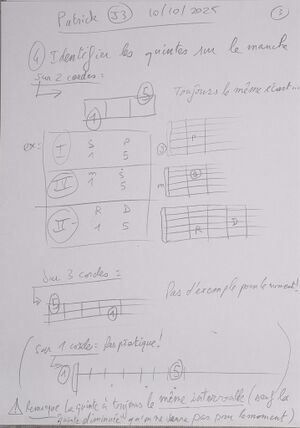 Patrick J3 10/10/2025 3
4 Identifier les quintes sur le manche
Sur 2 cordes =
5
1
Toujours le même écart...
ex:
I S P
1 5
IV m s
1 5
V R D
1 5
P
m
S
D
R
Sur 3 cordes =
5
1
Pas d'exemple pour le moment!
(sur 1 corde = pas pratique!
1 5
⚠ Remarque: la quinte a toujours le même intervalle (sauf la
"quinte diminuée" qu'on ne verra pas pour le moment)